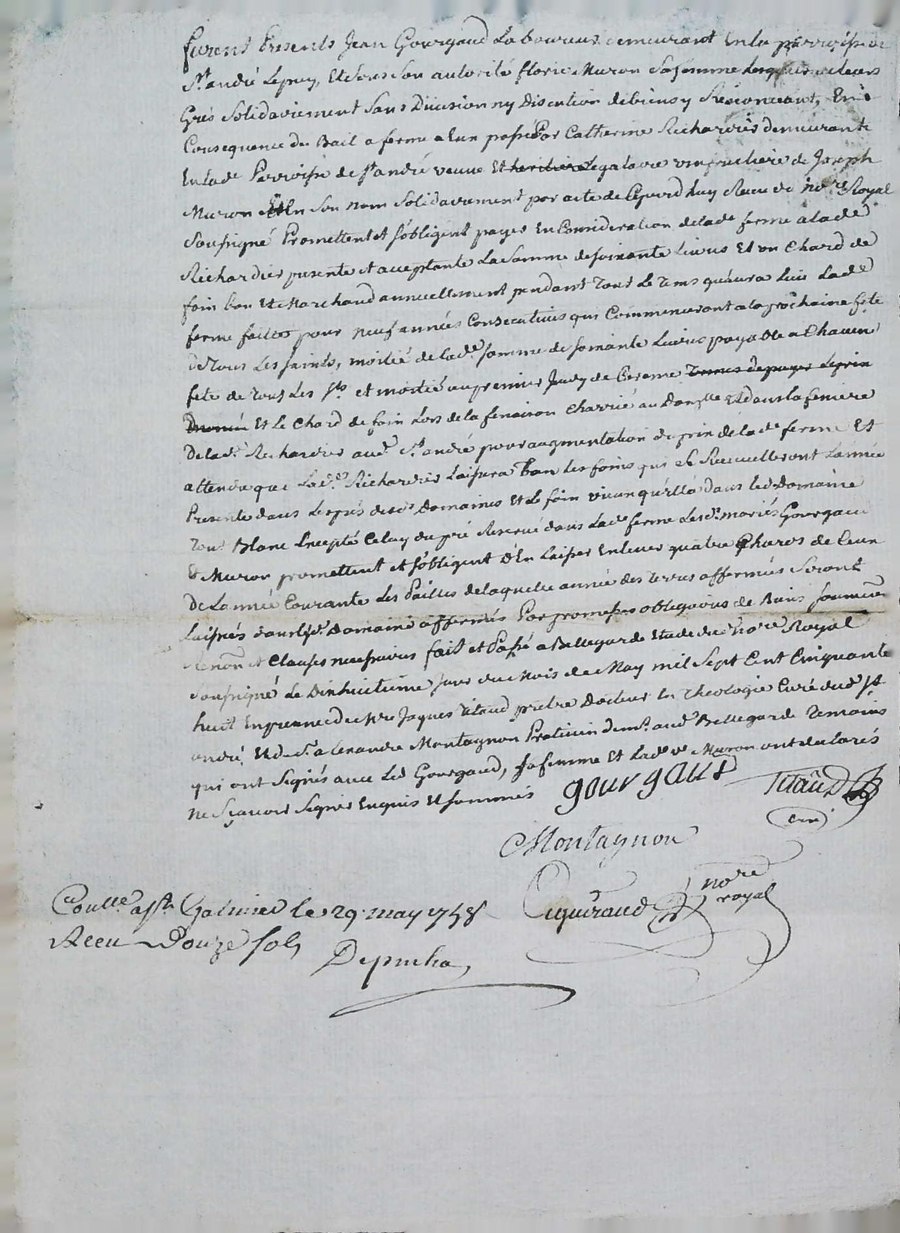 furent Presents Jean Gourgaud Laboureur demeurant En la perroisse de
St. andré Lepuy, Et sous son autorité florie Muron sa femme lesquels de leurs
Grés Solidairement Sans Division ny Discution de biens y Renonceant, En
Consequence du Bail a ferme a Eux passé Par Catherine Richardier demeurante
En lade Perroisse de St andré veuve Et heritiere Legataire usufruitiere de Joseph
Muron Et En Son nom Solidairement par acte de Cejourd'huy Receu du nore Royal
Soussigné Promettent et s'obligent payer En Consideration de lade ferme a lade
Richardier presente et acceptante La Somme de soixante Livres Et un Chard de
foin bon Et Marchand annuellement pendant Tout Le Tems qu'aura Lieu Lade
ferme faitte pour neuf années Consecutives qui Commenceront a la prochaine fete
de Tous Les saints, moitié de lade somme de soixante Livres payable a Chacune
fete de Tous Les Sts et moitié au premier Jeudy de Careme
Et le Chard de foin Lors de la fenaison Charrié au Et dans la feniere
de lade Richardier aud. St. andré pour augmentation du prix de lade ferme Et
attendu que Lade Richardier Laissera les foins qui se Recuelleront L'année
Presente dans Les prés desd. Domaines Et Le foin vieux qu'il y a dans led Domaine
Tout Blanc Excepté Celuy du pré Reservé dans Lade ferme Lesd. mariés Gourgaud
Et Muron promettent et s'obligent D'En Laisser Enlever quatre Chards de Ceux
De L'année Courante Les Pailles de laquelle année des Terres affermées Seront
Laissées dans led. Domaine affermés Par promesses obligations de Biens soumission
Renon et Clauses necessaires fait et Passé a Bellegarde Etude du nore Royal
Soussigné Le Dixhuitieme Jour du Mois de May mil Sept Cent Cinquante
huit En presence de Mre Jaques Titaud pretre Docteur En Theologie Curé dud St.
andré, Et de Sr. alexandre Montagnon Praticien demt. aud Bellegarde Temoins
qui ont Signés avec Led Gourgaud, sa femme Et Lade ve Muron ont declarés
ne Sçavoir Signer Enquis Et sommés gourgaud Titaud
Curé
Montagnon
nore
royal
Coulle a St Galmier le 29 may 1758
Receu Douze sols